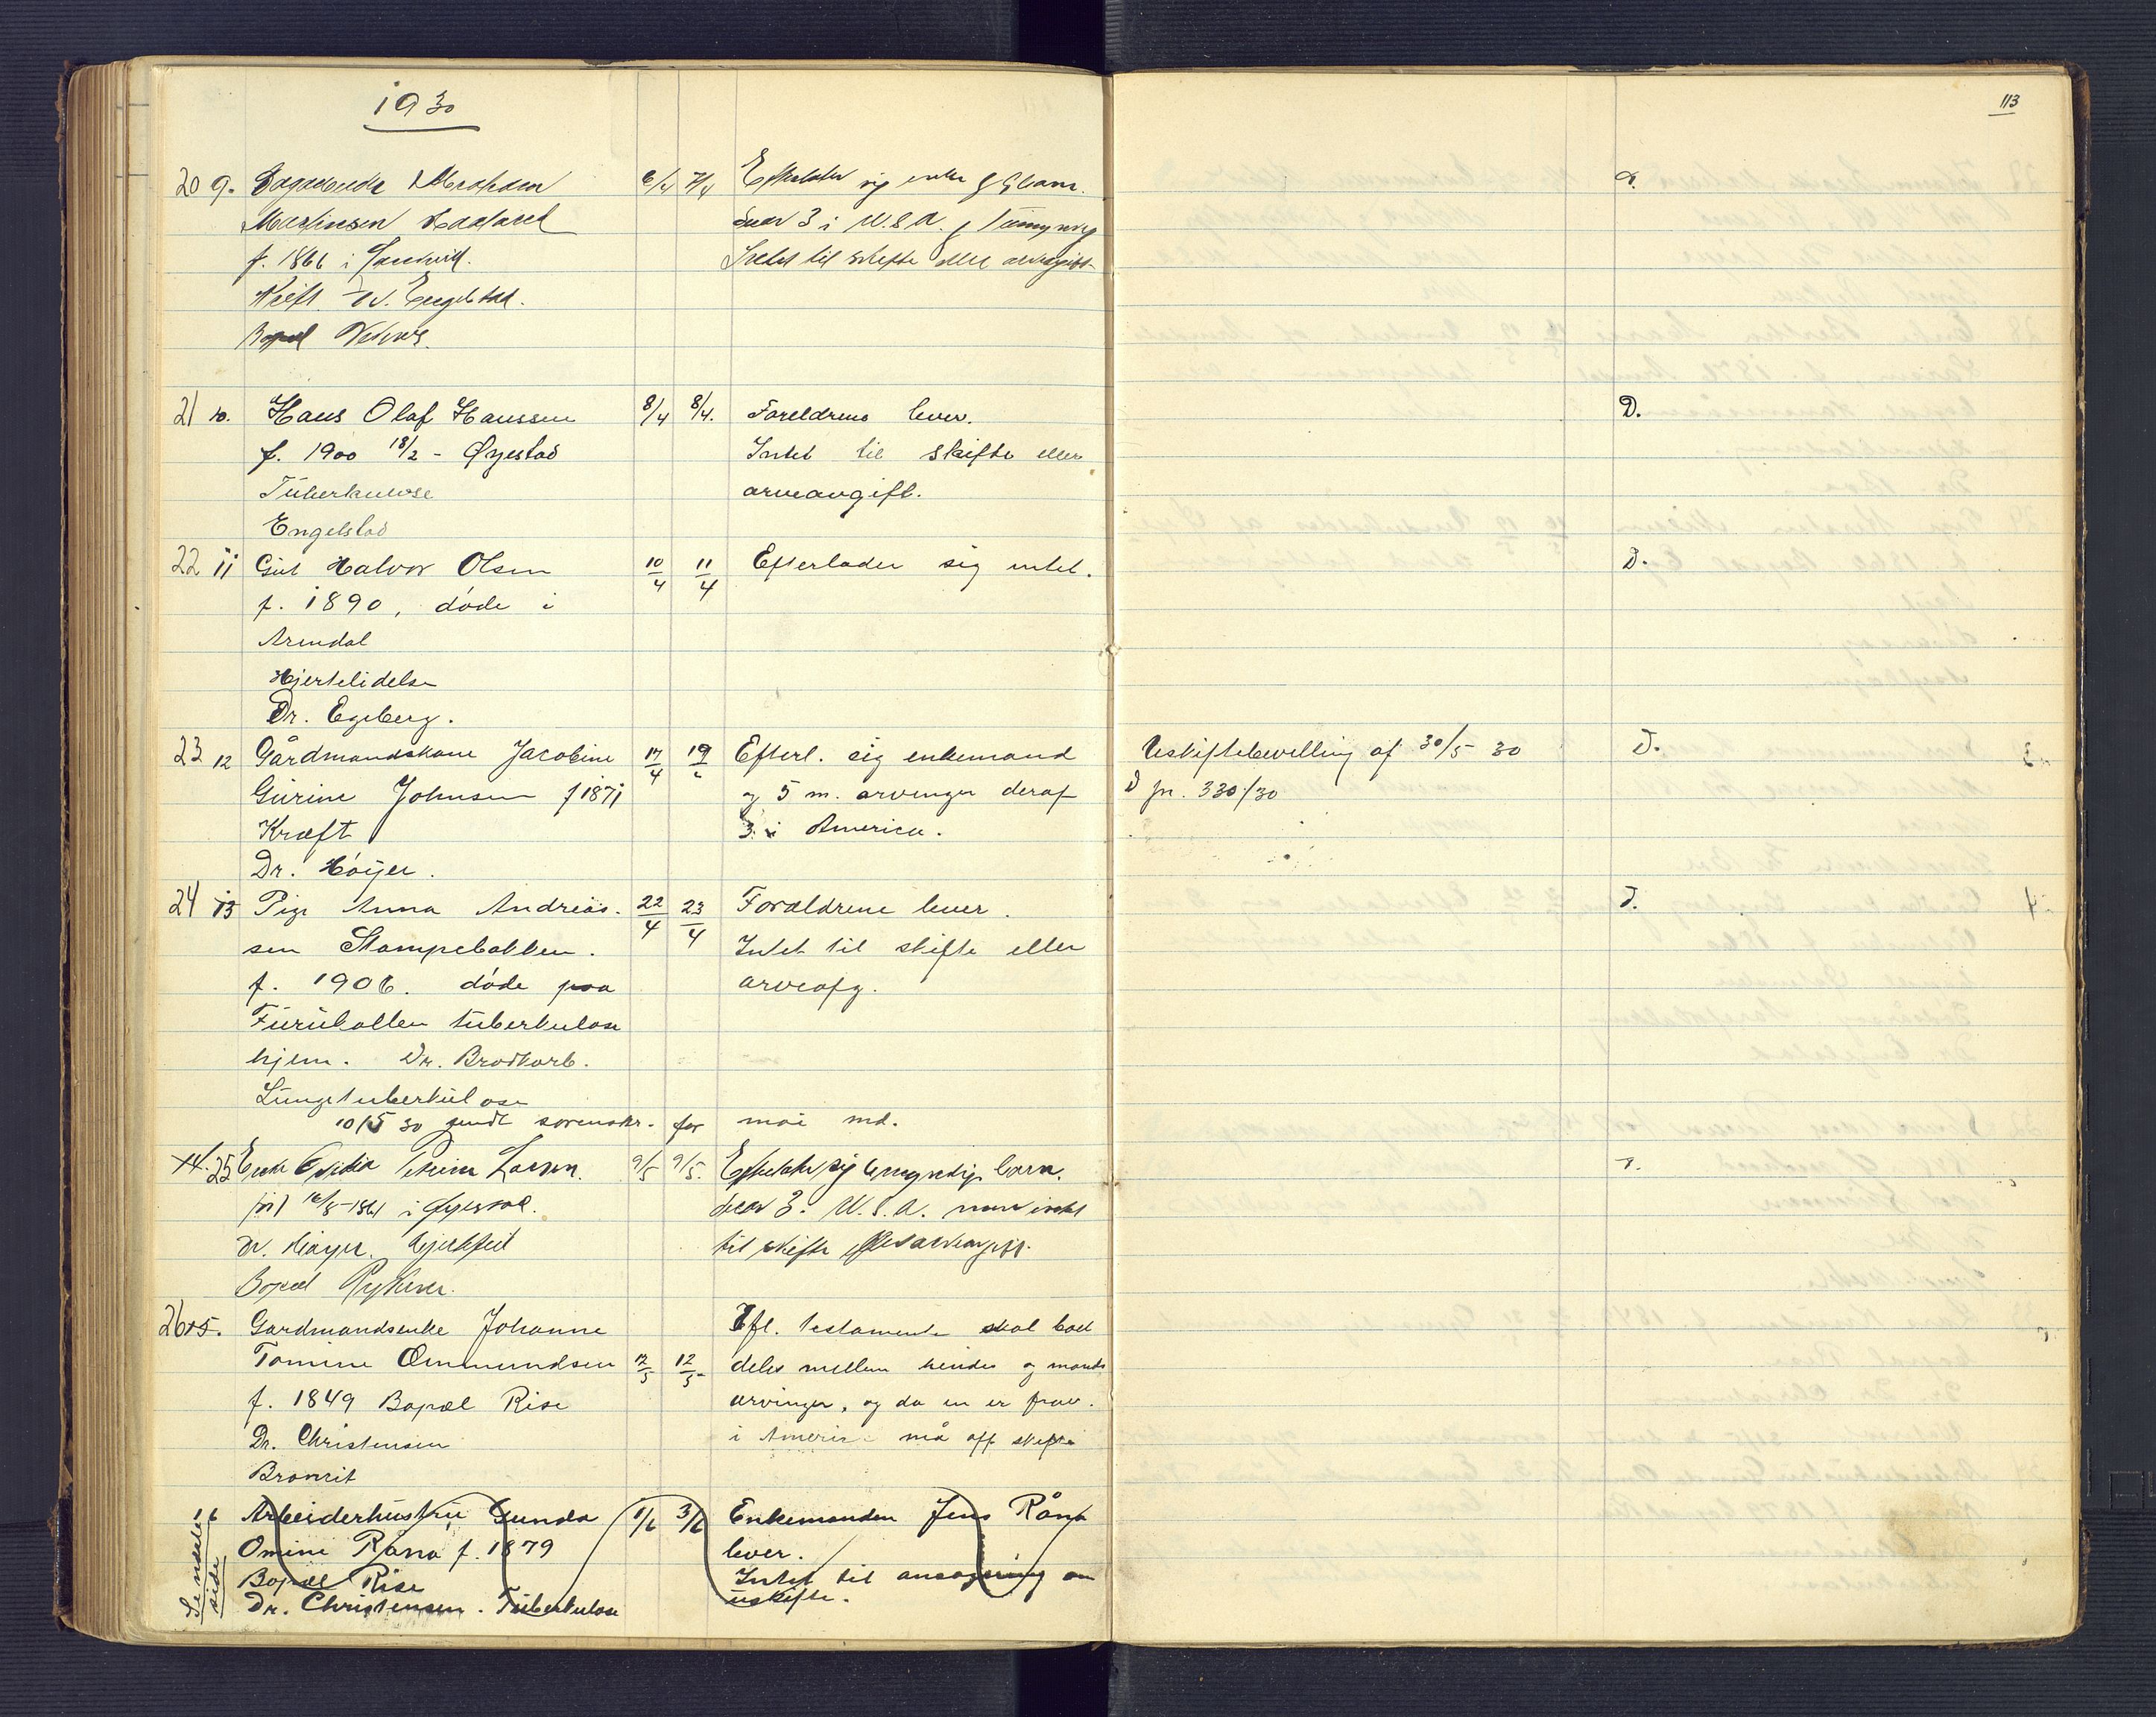 1930
113
20 9.
Martinsen
f. 1866 i
Kreft. Dr. Engelstad.
Bopæl
6/4 7/4 Efterlater sig enke
3 i U.S.A.
Intet til skifte eller arveavgift
D.
21 10. Hans Olaf Hanssen 8/4 8/4. Foreldrene lever. D.
f. 1900 18/2 - Øyestad Intet til skifte eller
Tuberkulose arveavgift.
Engelstad
22 11 Gut Halvor Olsen 10/4 11/4 Efterlader sig intet. D.
f. 1890, døde i
Arendal
Hjertelidelse
Dr. Egeberg.
23 12 Gårdmandskone Jacobine 17/4 19/4 Efterl. sig enkemand Uskiftebevilling af 30/5 30 D.
Gurine Johnsen f 1871 og 5 m. arvinger deraf D jn. 330/30
Kræft 3 i America.
Dr. Høijer.
24 13 Pige Anna Andreas- 22/4 23/4 Forældrene lever. D.
sen Stampebakken. Intet til skifte eller
f. 1906. døde paa arveafg.
Furubakken tuberkulose
hjem. Dr. Brodkorb.
Lungetuberkulose
10/5 30 sendt sorenskr. for mai md.
14. 25 Enke Petrine Larsen. 9/5 9/5. Efterlater sig barn. D.
16/8-1861 i Øyestad. derav 3 U.S.A. men intet
Dr. Høyer. Hjertefeil til skifte eller arveavgift.
Bopæl
26 15. Gardmandsenke Johanne Efl. testamente skal boet
Tomine Ommundsen 12/5 12/5 deles mellem hendes og mands
f. 1849 Bopæl Rise arvinger, og da en er frav.
Dr. Christensen i Amerika må off skiftes
Bronkit
Se neste side
16 Arbeiderhustru Gunda 1/6 3/6 Enkemanden Jens Råna
Omine Råna f. 1879 lever.
Bopæl Rise Intet til ansøgning om
Dr. Christensen. Tuberkulose uskifte.